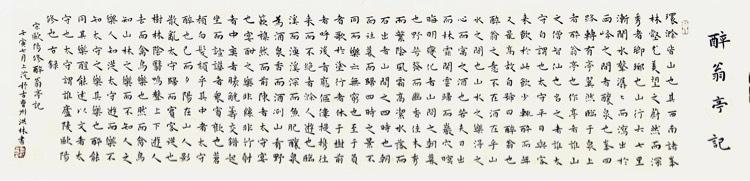 醉翁亭記
環滁皆山也其西南諸峯
林壑尤美望之蔚然而深
秀者瑯琊也山行六七里
漸聞水聲潺潺而瀉出於
兩峯之間者釀泉也峯回
路轉有亭翼然臨于泉上
者醉翁亭也作亭者誰山
之僧智仙也名之者誰太
守自謂也太守與客
來飲於此飲少輒醉而年
又最高故自號曰醉翁也
醉翁之意不在酒在乎山
水之間也山水之樂得之
心而寓之酒也若夫日出
而林霏開雲歸而巖穴暝
晦明變化者山間之朝暮
也野芳發而幽香佳木秀
而繁陰風霜高潔水落而
石出者山間之四時也朝
而往暮而歸四時之景不
同而樂亦無窮也至于負
者歌於塗行者休于樹前
者呼後者應傴僂提攜往
來而不絕者滁人遊也臨
溪而漁溪深而魚肥釀泉
為酒泉香而酒洌山肴野
蔌雜然而前陳者太守宴
也宴酣之樂非絲非竹射
者中奕者勝觥籌交錯起
坐而諠譁者衆賓懽也蒼
顏白髮頹乎其中者太守
醉也已而夕陽在山人影
散亂太守歸而賓客從也
樹林陰翳鳴聲上下遊人
去而禽鳥樂也然而禽鳥
知山林之樂而不知人之
樂人知從太守遊而樂而不
知太守之樂其樂也醉能
同其樂醒能述以文者太
守也太守謂誰廬陵歐陽
修也
宋歐陽修醉翁亭記
壬寅七月上浣於古曹州洪林書